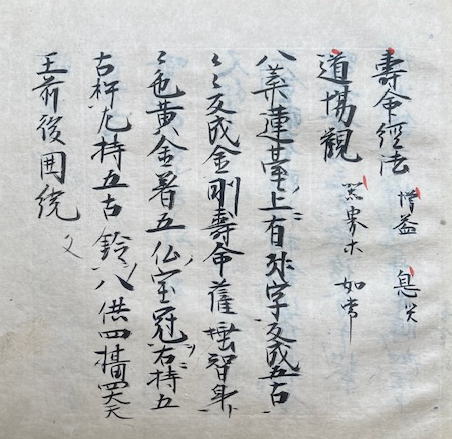 壽命經法 増益 息災
道場觀 器界ホ 如常
八葉蓮臺上有字反成五古
〻〻反成金剛壽命薩埵智身
〻色黄金着五仏宝冠右持五
古杵左持五古鈴八供四攝四天
王前後囲繞 文